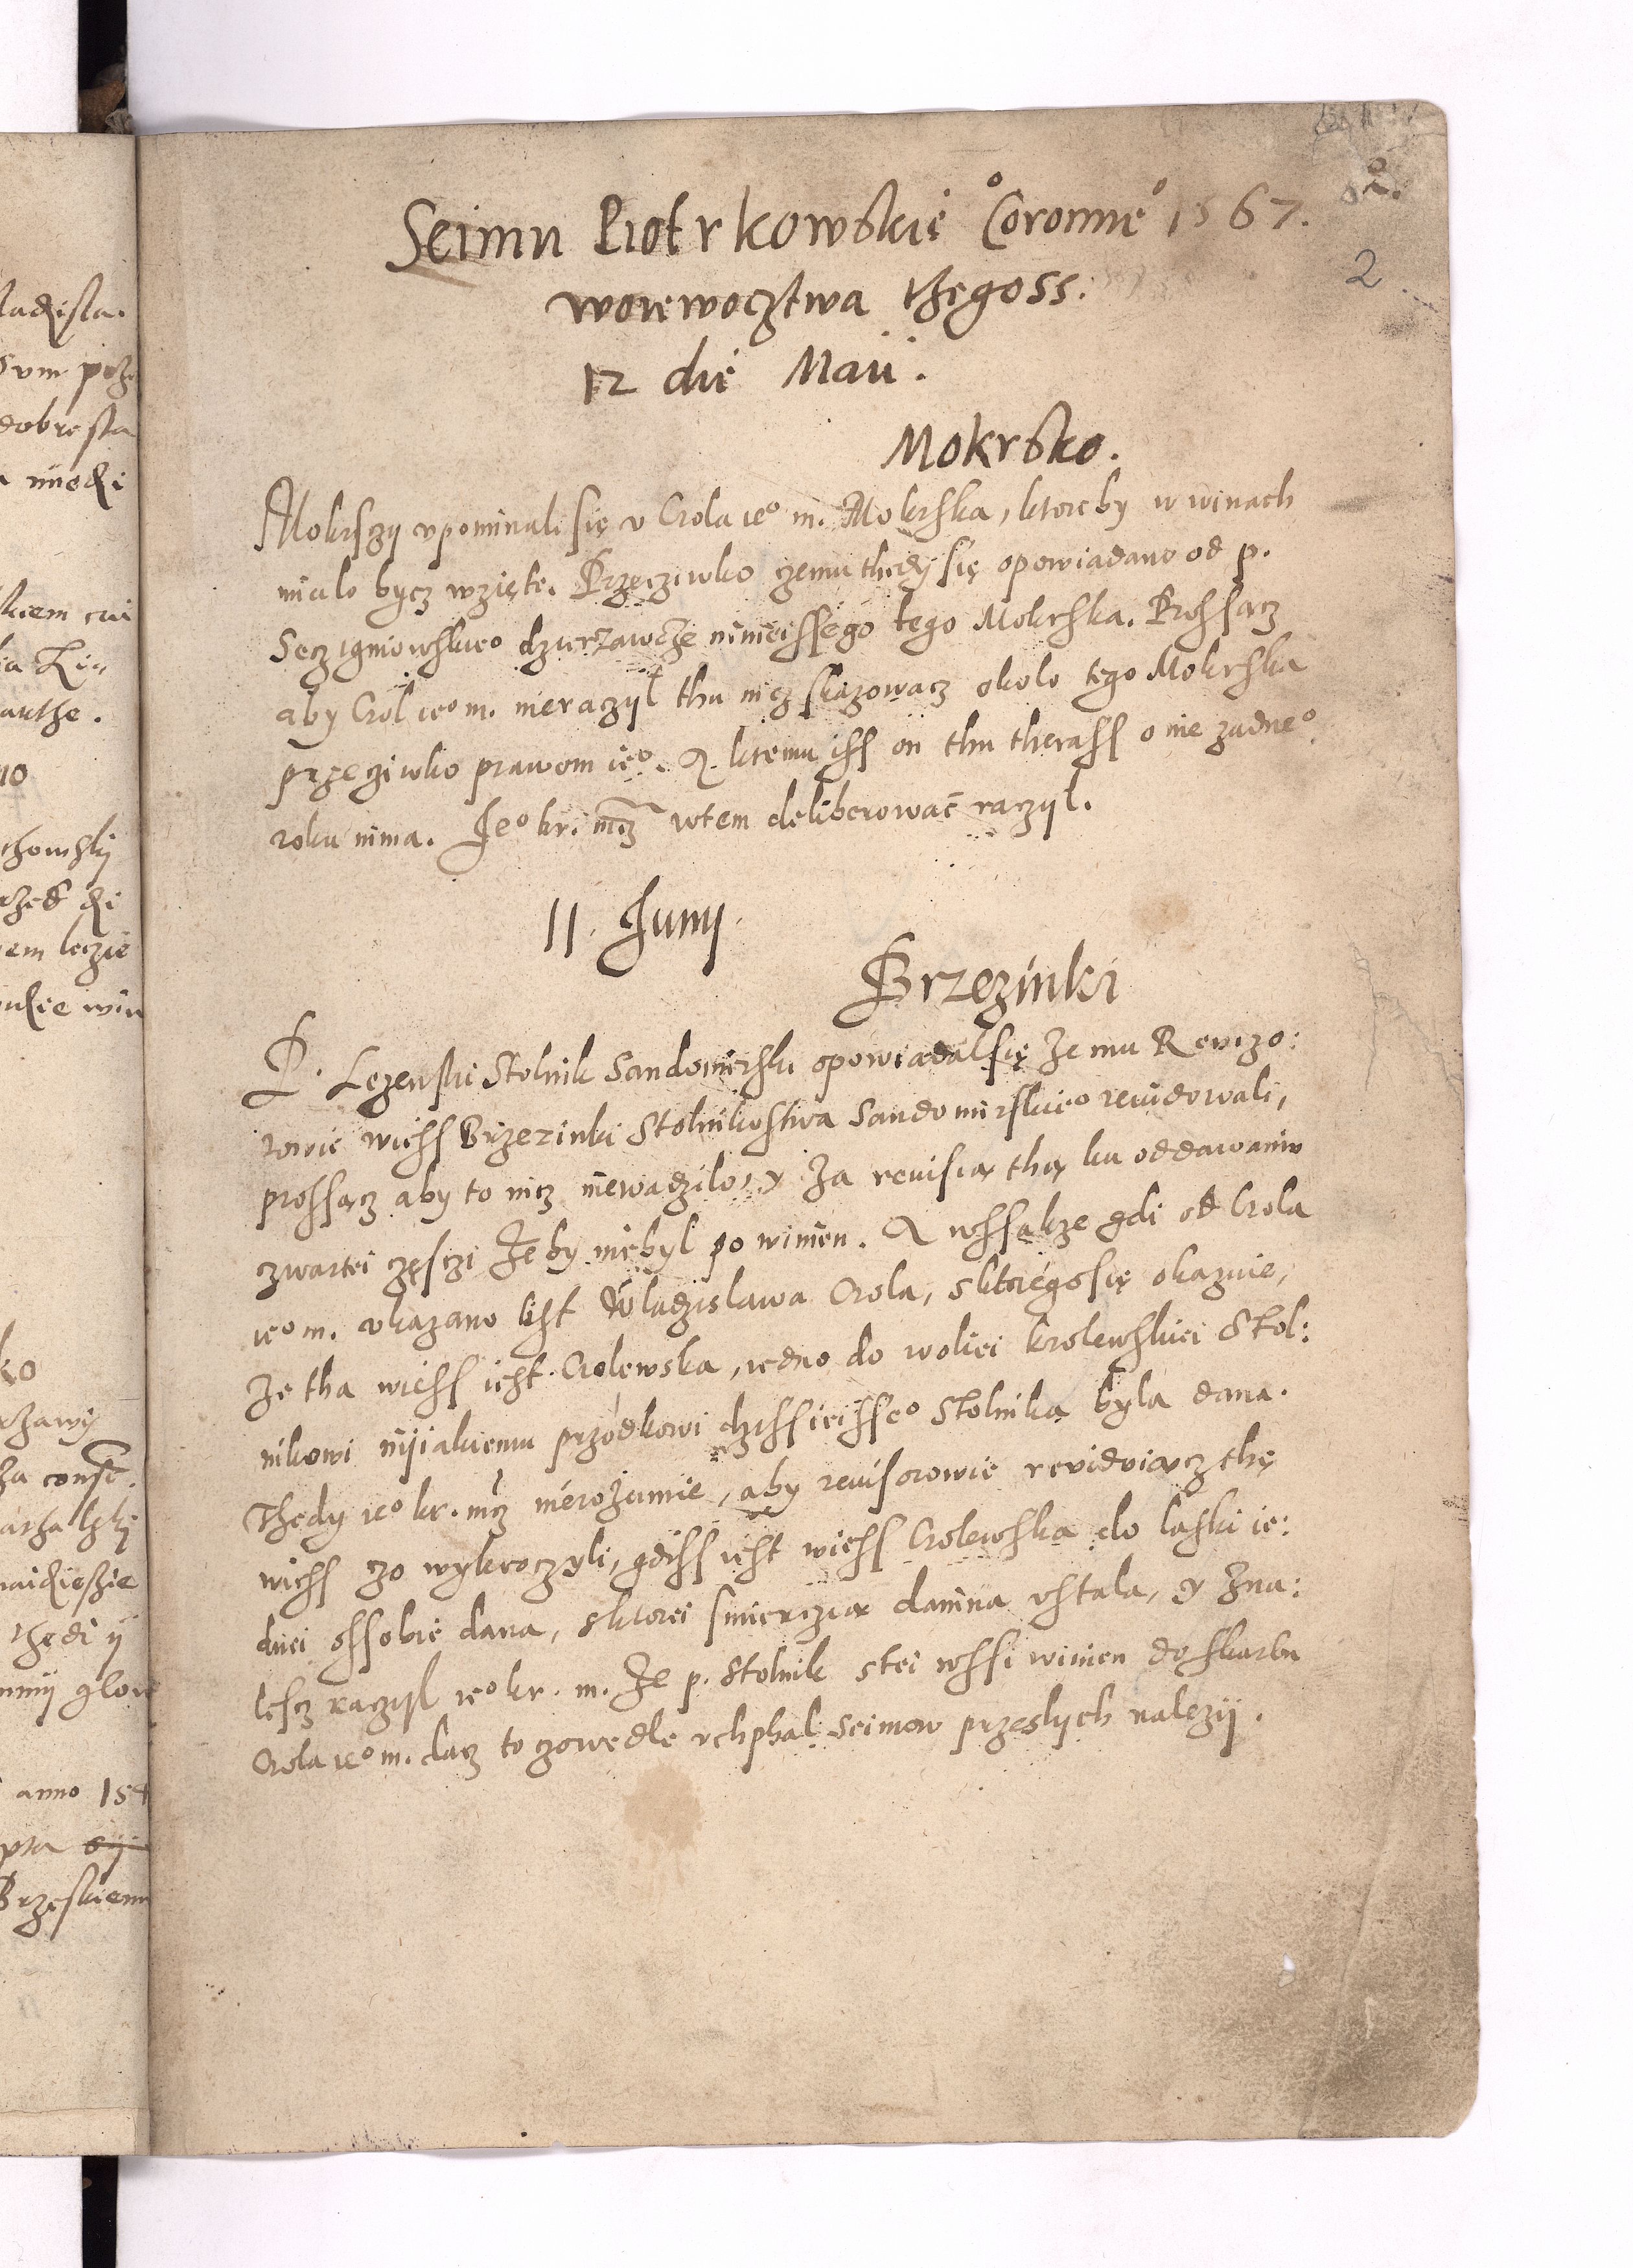 Seimu Piotrkowskieº Coronneº 1567.
2
woiewocztwa thegoss.
12 die Maii.
Mokrsko.
Mokrsczy upominali się u Crola ieº m. Mokrska, ktoreby w winach
mialo bycz wzięte. Przecziwko czemu thedy się opowiadano od p.
Seczigniowskieº dzierzawcze ninieissego tego Mokrska. Prossącz
aby Crol ieº m. nieraczyl thu nicz skazowacz okolo tego Mokrska
przecziwko prawom ieº. A ktemu iss on thu therass o nie zadneº
roku nima. Jeº kr. mcz wtem deliberowac raczyl.
11. Junij.
Brzezinki
P. Lezenski Stolnik Sandomirski opowiadal się ze mu Rewizo:
rowie wiess Brzezinki Stolnikostwa Sandomirskieº reuidowali,
prossącz aby to nicz niewadzilo, y za reuisią thą ku oddawaniu
czwartei częsczi zeby niebyl powinien. A wssakze gdi od Crola
ieº m. ukazano list Wladzislawa Crola, sktoregosię okazuie,
ze tha wiess iest Crolewska, iedno do woliei krolewskiei Stol:
nikowi niiakiemu przodkowi dzissieisseº Stolnika byla dana.
Thedy ieº kr. mcz nierozumie, aby reuisorowie revidviącz thę
wiess czo wykroczyli, gdiss iest wiess Crolewska do laski ie:
dnei ossobie dana, sktorei smierczią danina ustala, y zna:
lescz raczyl ieº kr. m. ze p. Stolnik stei wssi winien do skarbu
Crola ieº m. dacz to czowedle uchphal seimow przeslych nalezij.